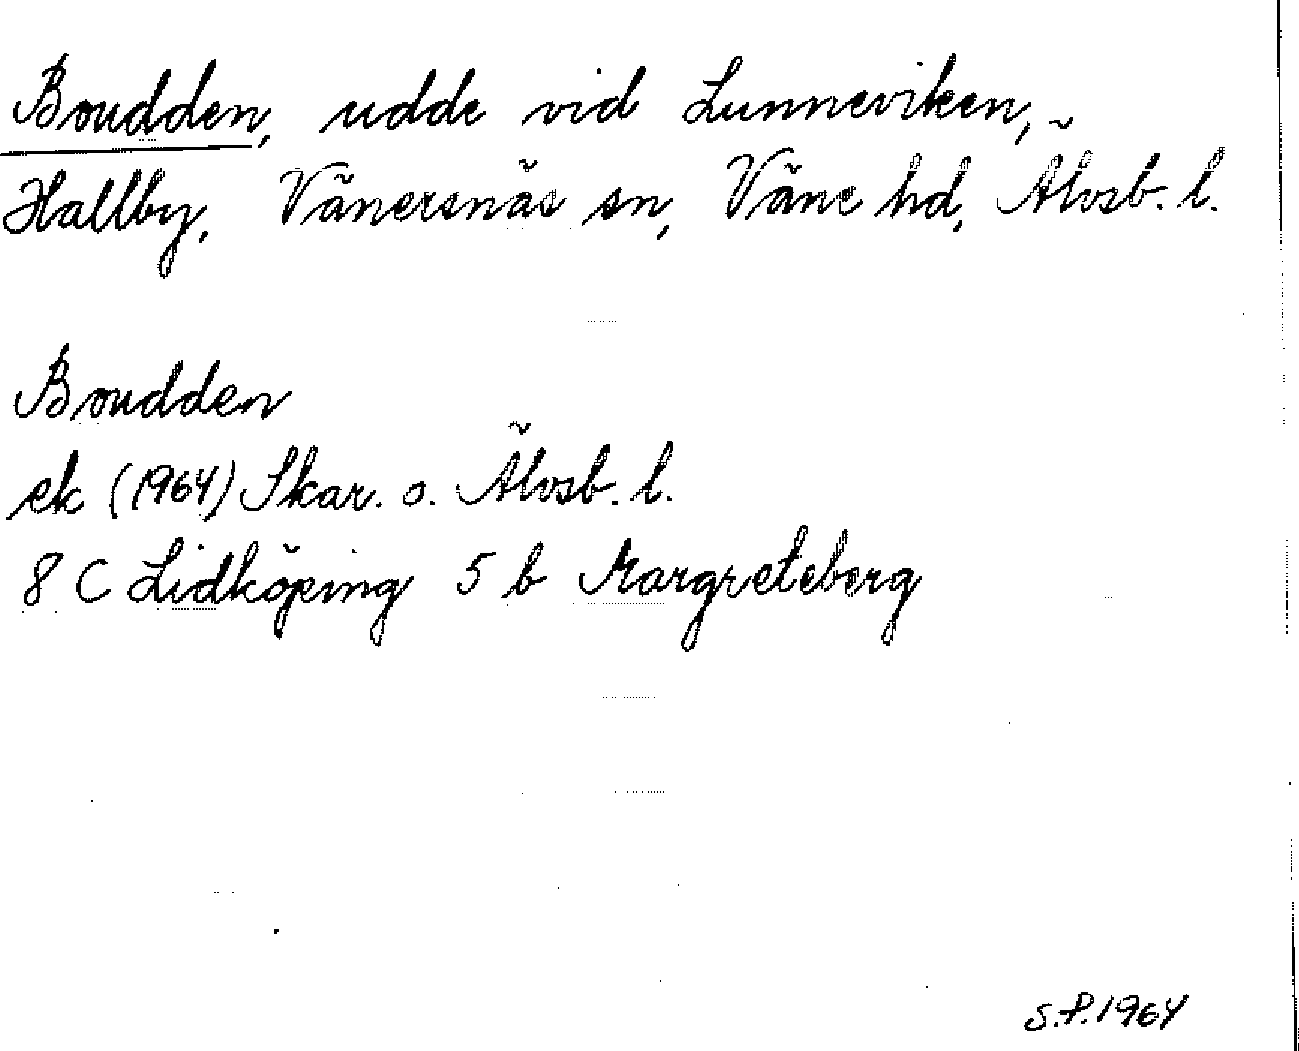 Boudden, udde vid Lunneviken,
Hallby, Vänersnäs sn, Väne hd, Älvsb. l.
Boudden
ek (1964) Skar. o. Älvsb. l.
8 C Lidköping 5 b Margreteberg
S.P. 1964